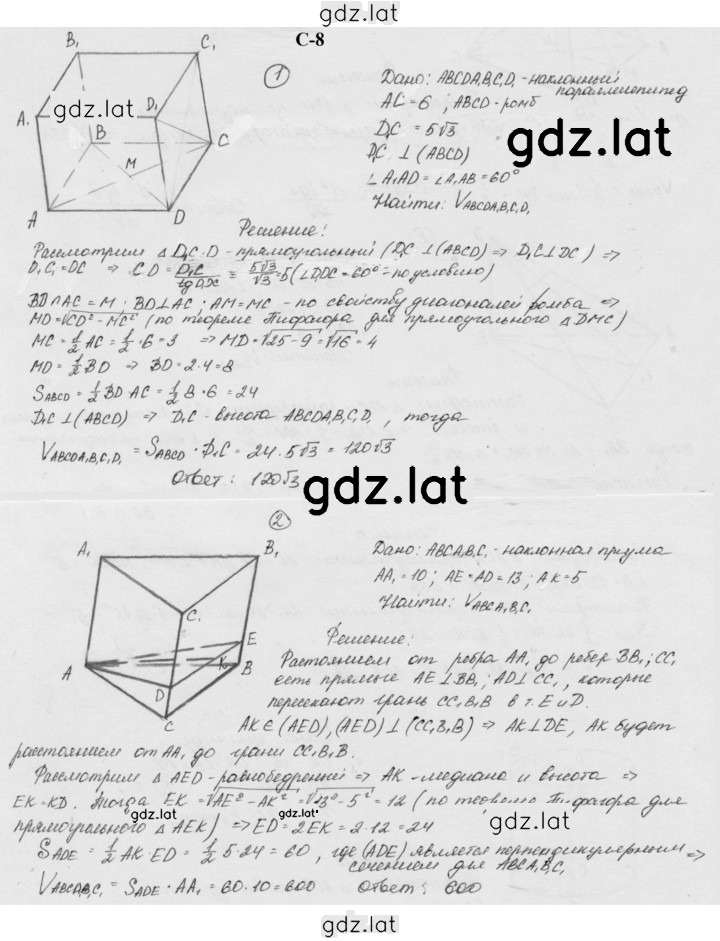 gdz.lat
С-8
1
B₁ C₁
A₁ D₁
B C
M
A D
gdz.lat
Дано: ABCDA₁B₁C₁D₁ - наклонный
параллелепипед
AC = 6 ; ABCD - ромб
D₁C = 5√3
D₁C ⊥ (ABCD)
∠A₁AD = ∠A₁AB = 60°
Найти: V ABCDA₁B₁C₁D₁
gdz.lat
Решение:
Рассмотрим △ D₁C D - прямоугольный (D₁C ⊥ (ABCD) ⇒ D₁C ⊥ DC) ⇒
D₁C₁ = DC ⇒ CD = D₁C / tg D₁DC = 5√3 / √3 = 5 (∠D₁DC = 60° - по условию)
BD ∩ AC = M ; BD ⊥ AC ; AM = MC - по свойству диагоналей ромба ⇒
MD = √CD² - MC² (по теореме Пифагора для прямоугольного △ DMC)
MC = 1/2 AC = 1/2 · 6 = 3 ⇒ MD = √25 - 9 = √16 = 4
MD = 1/2 BD ⇒ BD = 2 · 4 = 8
S ABCD = 1/2 BD · AC = 1/2 8 · 6 = 24
D₁C ⊥ (ABCD) ⇒ D₁C - высота ABCDA₁B₁C₁D₁ , тогда
V ABCDA₁B₁C₁D₁ = S ABCD · D₁C = 24 · 5√3 = 120√3
Ответ: 120√3
gdz.lat
2
A₁ B₁
C₁
E
A K B
D
C
Дано: ABCA₁B₁C₁ - наклонная призма
AA₁ = 10 ; AE = AD = 13 ; AK = 5
Найти: V ABCA₁B₁C₁
Решение:
Растоянием от ребра AA₁ до ребер BB₁ ; CC₁
есть прямые AE ⊥ BB₁ ; AD ⊥ CC₁ , которые
пересекают грань CC₁B₁B в т. E и D.
AK ∈ (AED), (AED) ⊥ (CC₁B₁B) ⇒ AK ⊥ DE, AK будет
расстоянием от AA₁ до грани CC₁B₁B.
Рассмотрим △ AED - равнобедренный ⇒ AK - медиана и высота ⇒
EK = KD. Тогда EK = √AE² - AK² = √13² - 5² = 12 (по теореме Пифагора для
gdz.lat gdz.lat
прямоугольного △ AEK) ⇒ ED = 2EK = 2 · 12 = 24
gdz.lat
S ADE = 1/2 AK · ED = 1/2 5 · 24 = 60 , где (ADE) является перпендикулярным ⇒
сечением для ABCA₁B₁C₁
V ABCA₁B₁C₁ = S ADE · AA₁ = 60 · 10 = 600 Ответ: 600
gdz.lat